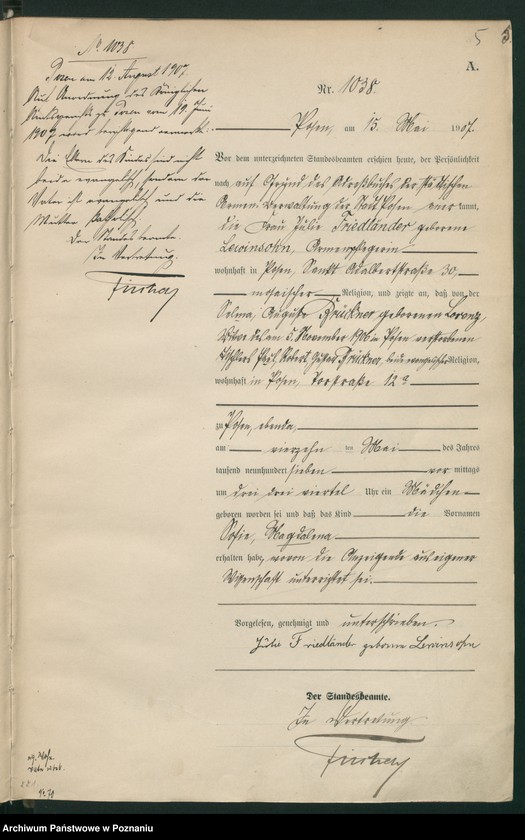 5
A.
No 1038
Posen am 12. August 1907.
Auf Anordnung des Königlichen
Amtsgerichts zu Posen vom 19. Juni
1907, wird berichtigend vermerkt:
Die Eltern des Kindes sind nicht
beide evangelisch, sondern der
Vater ist evangelisch und die
Mutter katholisch.
Der Standesbeamte.
In Vertretung.
Nr. 1038.
Posen, am 15. Mai 1907.
Vor dem unterzeichneten Standesbeamten erschien heute, der Persönlichkeit
nach auf Grund des Adreßbuches der städtischen
Armen-Verwaltung der Stadt Posen anerkannt,
die Frau Julie Friedländer geborene
Lewinsohn, Armenpflegerin
wohnhaft in Posen, Sankt Adalbertstraße 30,
mosaischer Religion, und zeigte an, daß von der
Selma, Auguste Brückner geborenen Lorenz,
Witwe des am 5. November 1906 in Posen verstorbenen
Tischlers Robert Gustav Brückner, beide evangelischer Religion,
wohnhaft in Posen, Torstraße 12a
zu Posen, ebenda,
am vierzehn ten Mai des Jahres
tausend neunhundert sieben vor mittags
um drei drei viertel Uhr ein Mädchen
geboren worden sei und daß das Kind die Vornamen
Sofie, Magdalena
erhalten habe, wovon die Anzeigende aus eigener
Wissenschaft unterrichtet sei.
Vorgelesen, genehmigt und unterschrieben.
Julie Friedländer geborene Lewinsohn
Der Standesbeamte.
In Vertretung
Archiwum Państwowe w Poznaniu